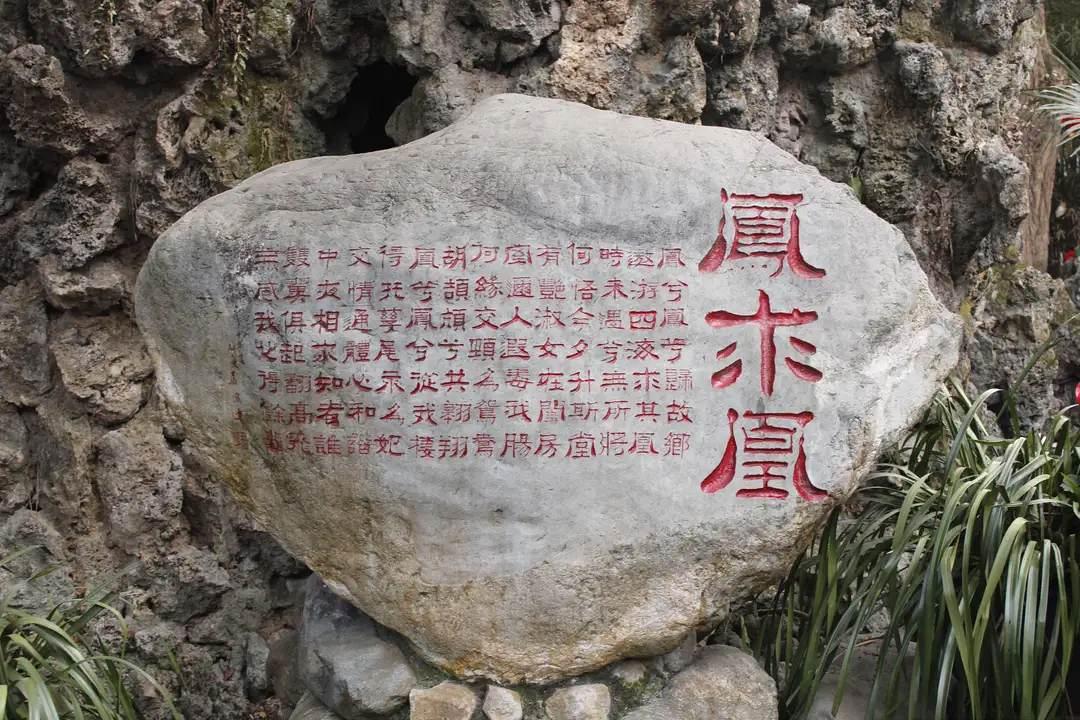 鳳求凰
鳳兮鳳兮歸故鄉
遨游四海求其凰
時未遇兮無所將
何悟今夕升斯堂
有艷淑女在閨房
室邇人遐毒我腸
何緣交頸為鴛鴦
胡頡頏兮共翱翔
凰兮凰兮從我棲
得托孳尾永為妃
交情通體心和諧
中夜相從知者誰
雙翼俱起翻高飛
無感我